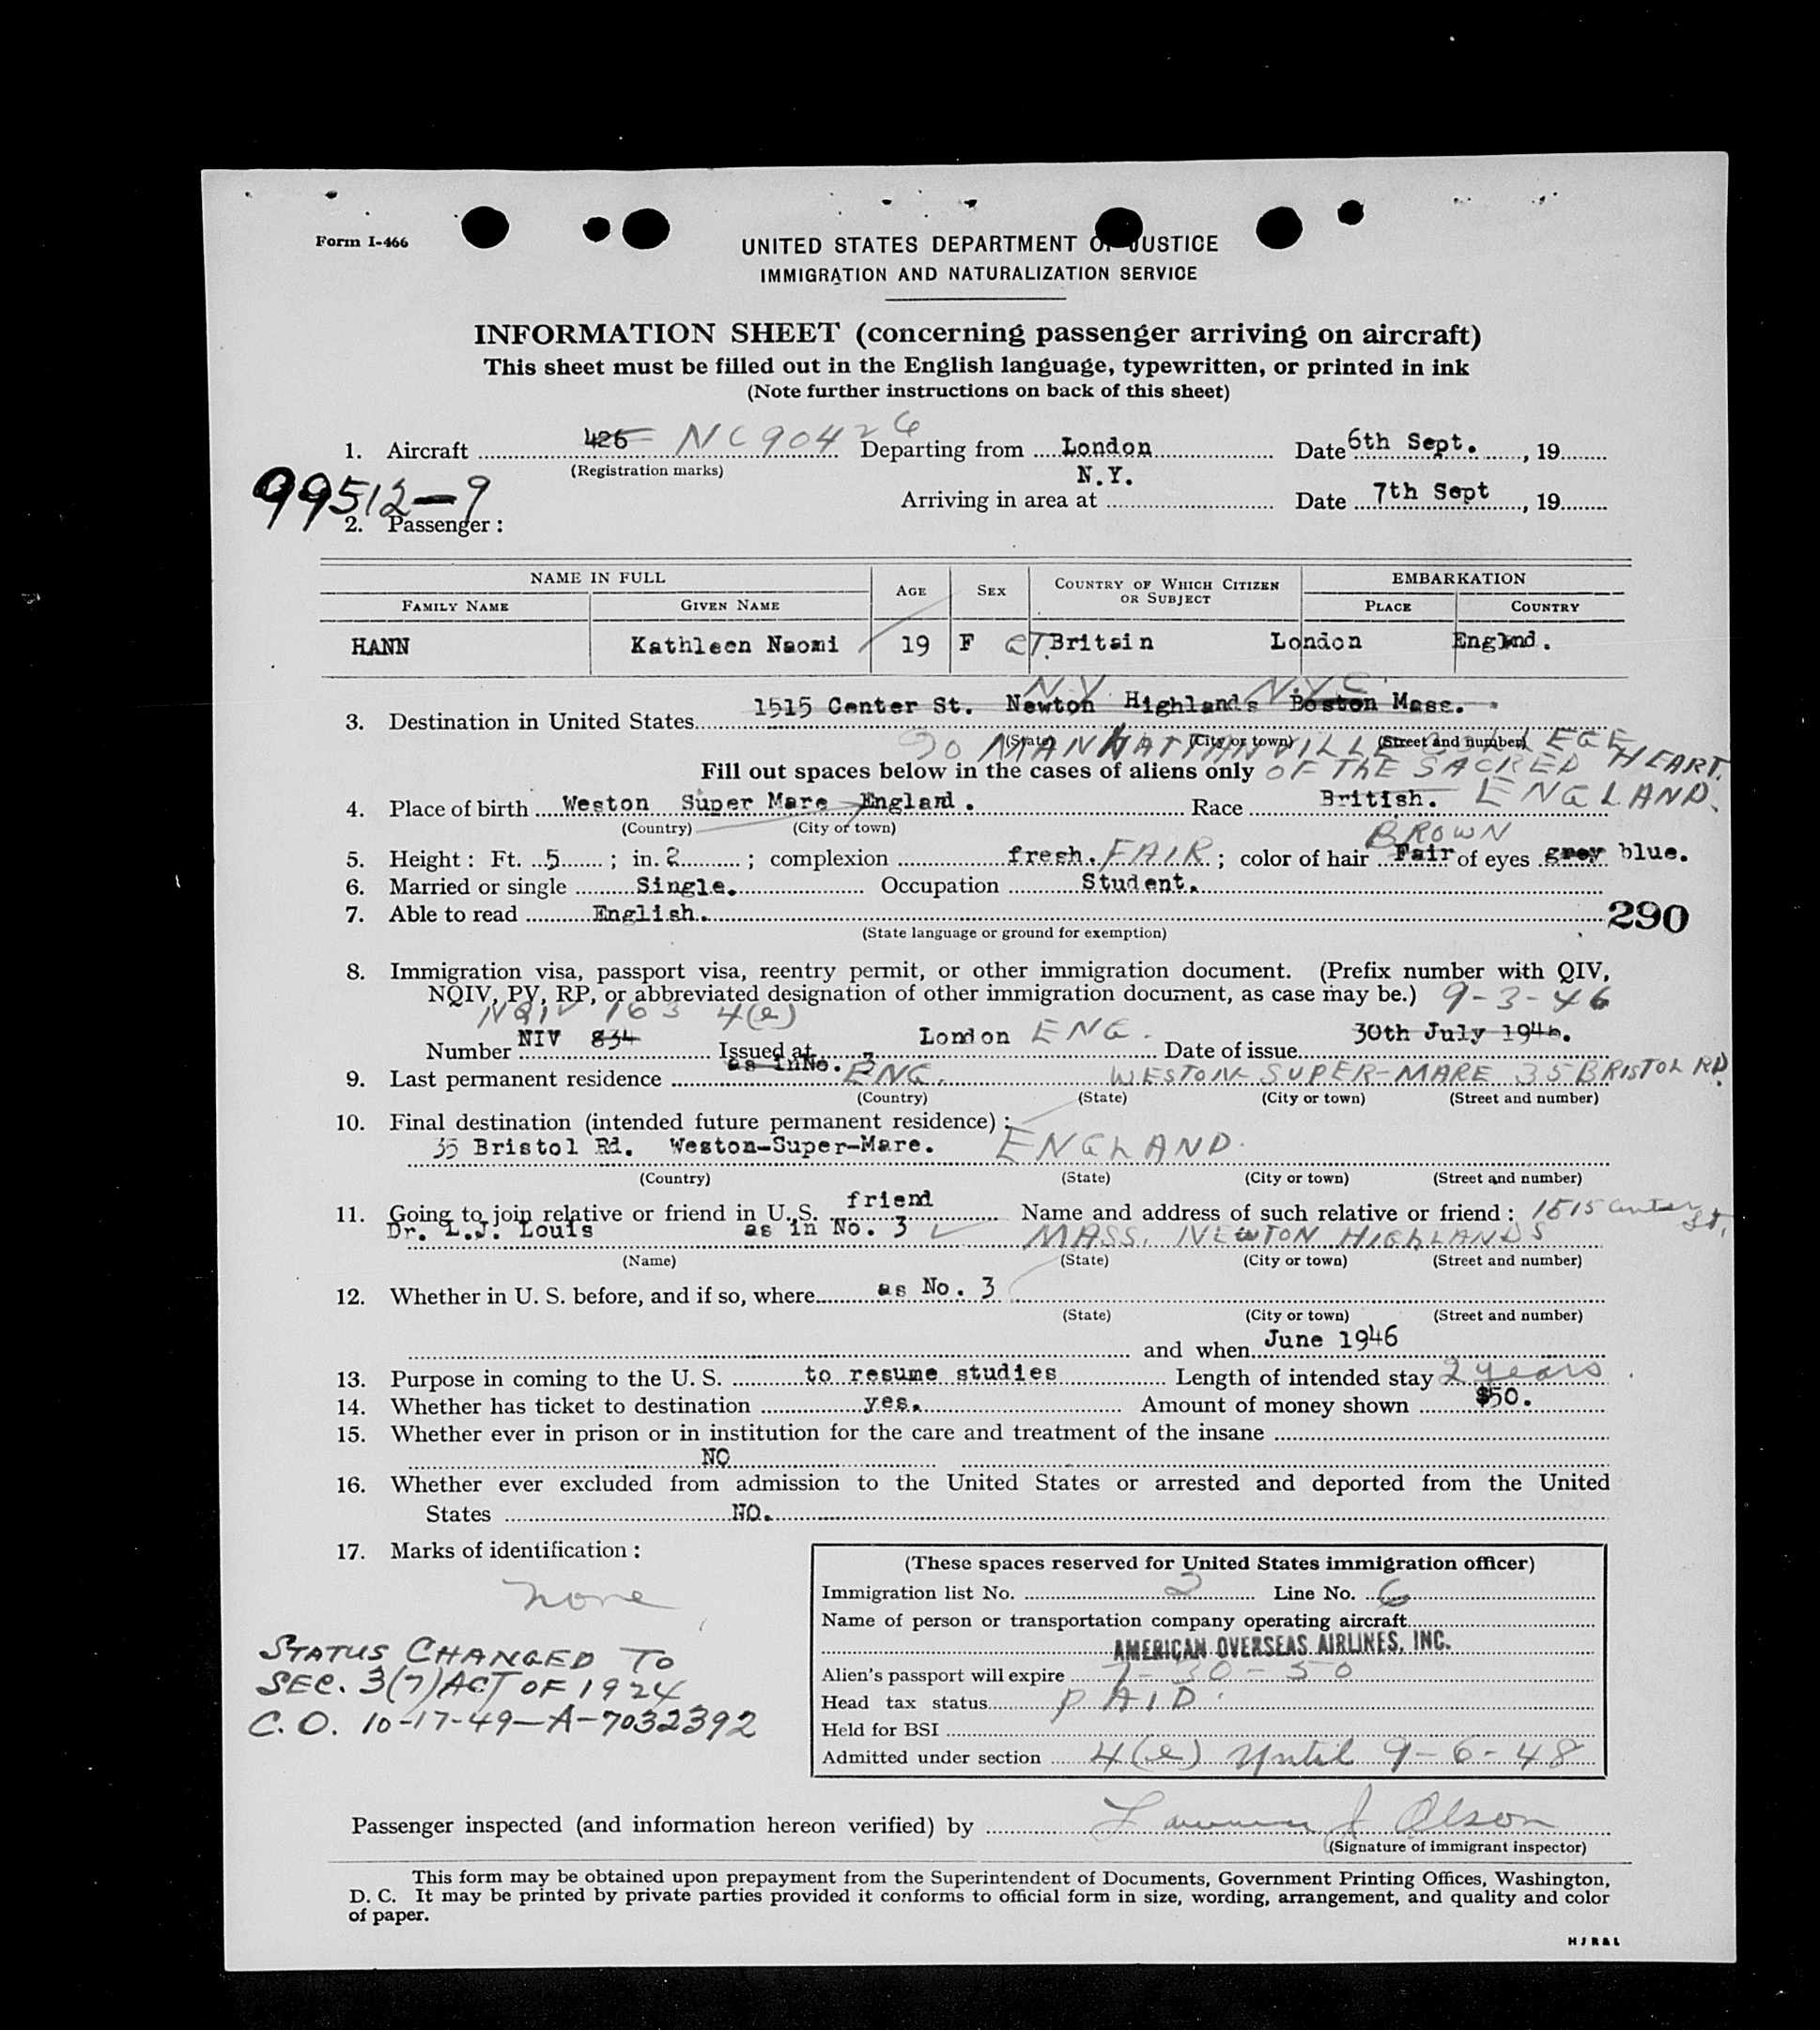 Form I-466
UNITED STATES DEPARTMENT OF JUSTICE
IMMIGRATION AND NATURALIZATION SERVICE
INFORMATION SHEET (concerning passenger arriving on aircraft)
This sheet must be filled out in the English language, typewritten, or printed in ink
(Note further instructions on back of this sheet)
1. Aircraft 426 NC90426 Departing from London Date 6th Sept. , 19
(Registration marks)
N.Y.
Arriving in area at Date 7th Sept , 19
99512-9
2. Passenger :
NAME IN FULL AGE SEX COUNTRY OF WHICH CITIZEN OR SUBJECT EMBARKATION
FAMILY NAME GIVEN NAME PLACE COUNTRY
HANN Kathleen Naomi 19 F GT. Britain London Englnd.
N.Y. N.Y.C.
3. Destination in United States 1515 Center St. Newton Highlands Boston Mass.
(State) (City or town) (Street and number)
MANHATTANVILLE COLLEGE
Fill out spaces below in the cases of aliens only OF THE SACRED HEART.
4. Place of birth Weston Super Mare England. Race British. ENGLAND.
(Country) (City or town)
BROWN
5. Height : Ft. 5 ; in. 2 ; complexion fresh. FAIR ; color of hair Fair of eyes grey blue.
6. Married or single Single. Occupation Student.
7. Able to read English.
290
(State language or ground for exemption)
8. Immigration visa, passport visa, reentry permit, or other immigration document. (Prefix number with QIV,
NQIV, PV, RP, or abbreviated designation of other immigration document, as case may be.) 9-3-46
NQIV 163 4(e)
Number NIV 834 Issued at London ENG. Date of issue 30th July 1946.
as inNo. 3
9. Last permanent residence ENG. WESTON-SUPER-MARE 35 BRISTOL RD.
(Country) (State) (City or town) (Street and number)
10. Final destination (intended future permanent residence) :
35 Bristol Rd. Weston-Super-Mare. ENGLAND.
(Country) (State) (City or town) (Street and number)
11. Going to join relative or friend in U. S. friend Name and address of such relative or friend : 1515 Center St.
Dr. L.J. Louis as in No. 3 MASS. NEWTON HIGHLANDS
(Name) (State) (City or town) (Street and number)
12. Whether in U. S. before, and if so, where as No. 3
(State) (City or town) (Street and number)
and when June 1946
13. Purpose in coming to the U. S. to resume studies Length of intended stay 2 years
14. Whether has ticket to destination yes. Amount of money shown $50.
15. Whether ever in prison or in institution for the care and treatment of the insane
NO
16. Whether ever excluded from admission to the United States or arrested and deported from the United
States NO.
17. Marks of identification :
none
STATUS CHANGED TO
SEC. 3(7) ACT OF 1924
C.O. 10-17-49-A-7032392
(These spaces reserved for United States immigration officer)
Immigration list No. 2 Line No. 6
Name of person or transportation company operating aircraft
AMERICAN OVERSEAS AIRLINES, INC.
Alien's passport will expire 7-30-50
Head tax status PAID.
Held for BSI
Admitted under section 4(e) until 9-6-48
Passenger inspected (and information hereon verified) by J Olson
(Signature of immigrant inspector)
This form may be obtained upon prepayment from the Superintendent of Documents, Government Printing Offices, Washington,
D. C. It may be printed by private parties provided it conforms to official form in size, wording, arrangement, and quality and color
of paper.
HJR&L